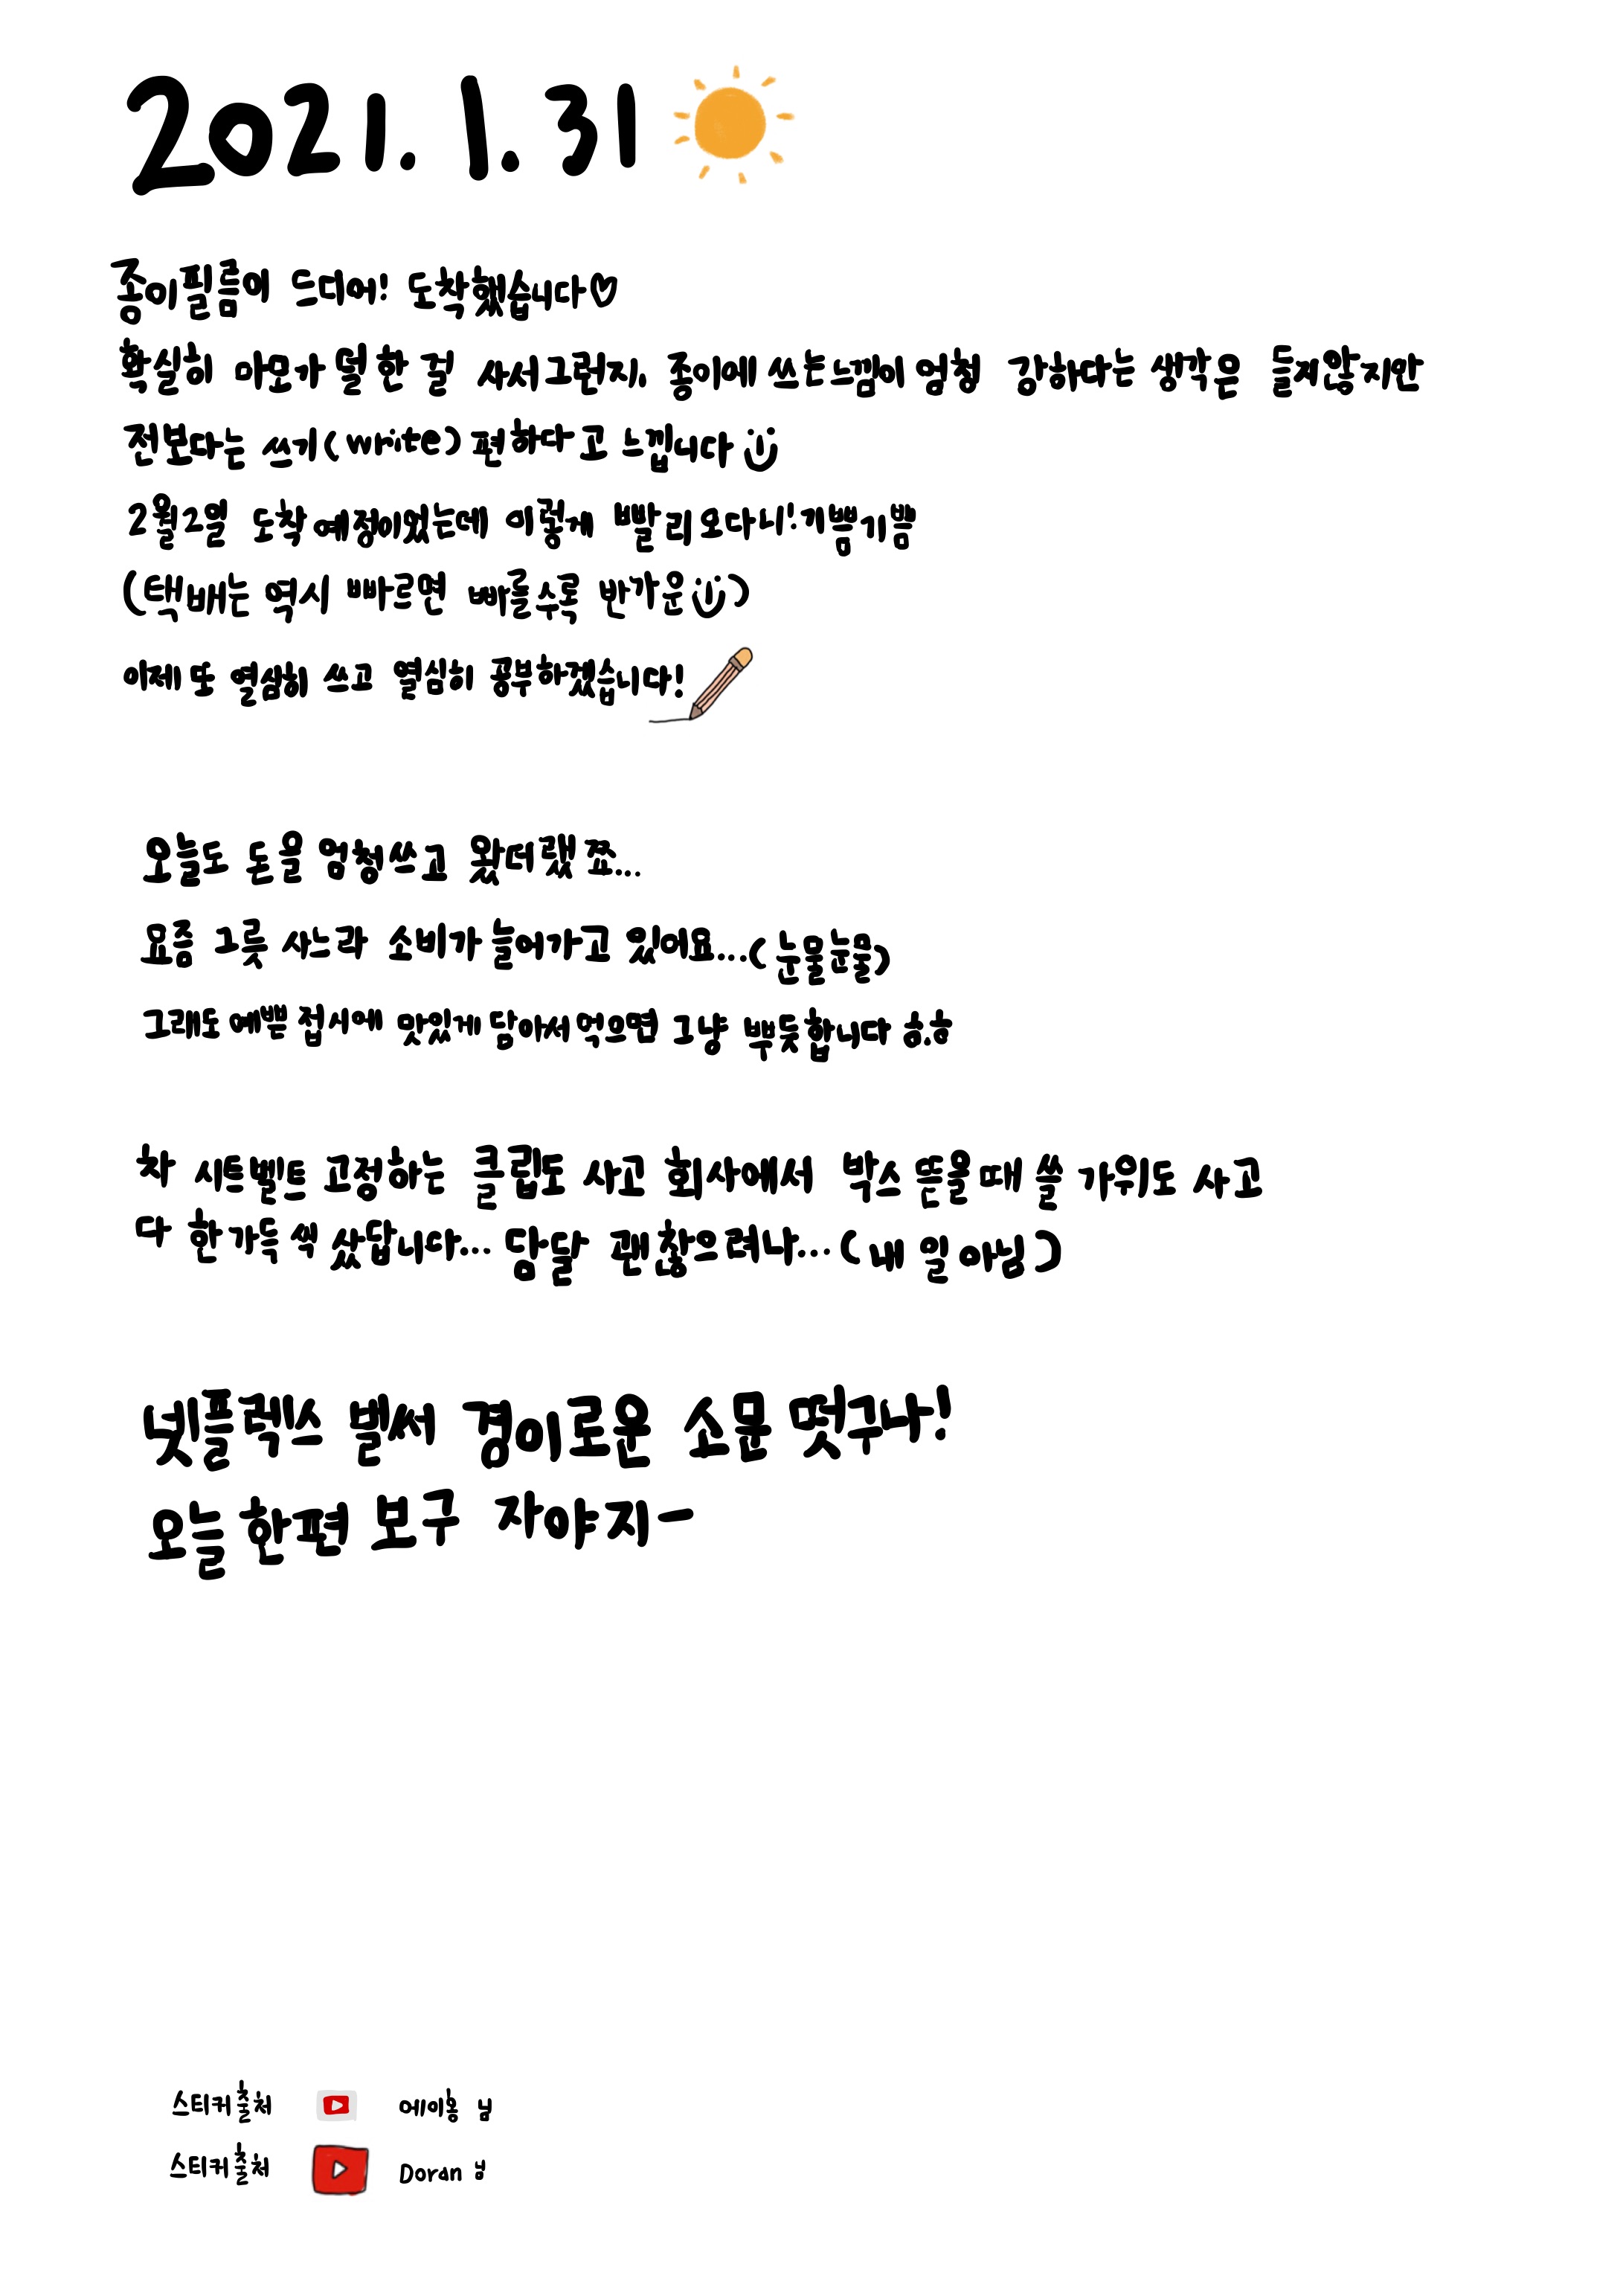 2021. 1. 31
종이필름이 드디어! 도착했습니다♡
확실히 마모가 덜 한 걸 사서그런지, 종이에 쓰는느낌이 엄청 강하다는 생각은 들지않지만
전보다는 쓰기(write) 편하다고 느낍니다
2월2일 도착예정이었는데 이렇게 빨리오다니!기쁨기쁨
(택배는 역시 빠르면 빠를수록 반가운)
이제 또 열심히 쓰고 열심히 공부하겠습니다!
오늘도 돈을 엄청쓰고 왔더랬죠...
요즘 그릇 사느라 소비가 늘어가고 있어요...(눈물눈물)
그래도 예쁜 접시에 맛있게 담아서 먹으면 그냥 뿌듯합니다 ㅎ.ㅎ
차 시트벨트 고정하는 클립도 사고 회사에서 박스 뜯을때 쓸 가위도 사고
다 한가득씩 샀답니다... 담달 괜찮으려나...(내 일 아님)
넷플렉스 벌써 경이로운 소문 떳구나!
오늘 한편 보구 자야지-
스티커출처 에이홍 님
스티커출처 Doran 님